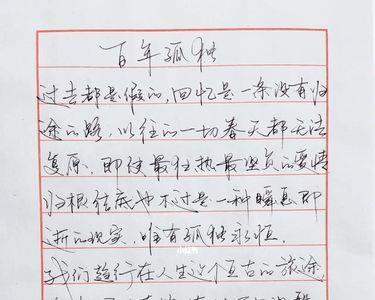 百年孤独
过去都是假的,回忆是一条没有归
途的路,以往的一切春天都无法
复原,即使最狂热最坚贞的爱情
归根结底也不过是一种瞬息即
逝的现实,唯有孤独永恒.
我们趋行在人生这个亘古的旅途,